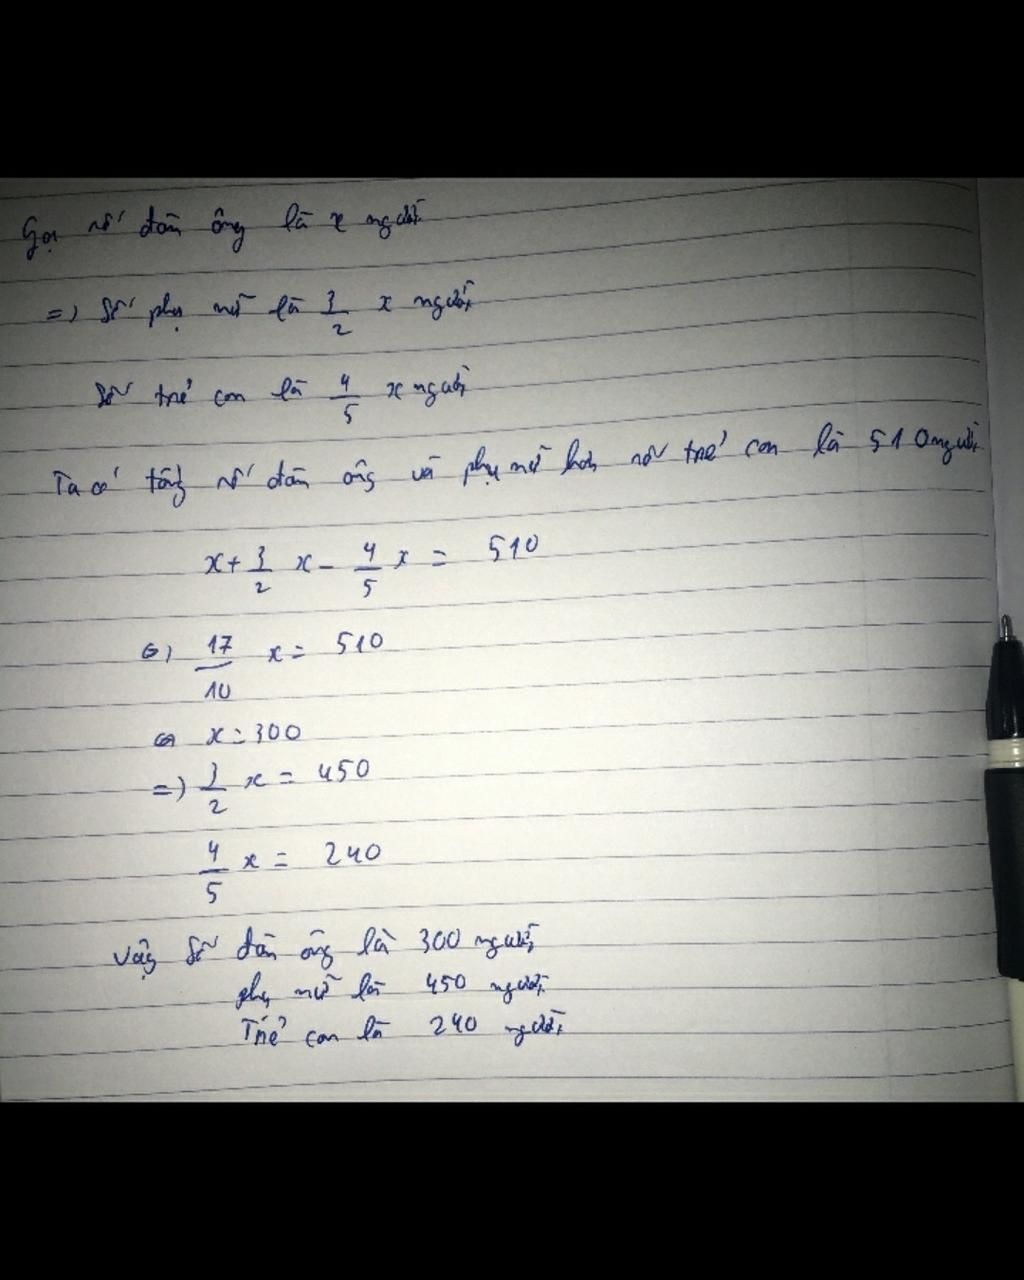 Gọi số đàn ông là x người
=) Số phụ nữ là 3/2 x người
Số trẻ con là 4/5 x người
Ta có tổng số đàn ông và phụ nữ hơn số trẻ con là 510 người
x + 3/2 x - 4/5 x = 510
(=) 17/10 x = 510
(=) x = 300
=) 3/2 x = 450
4/5 x = 240
Vậy số đàn ông là 300 người
phụ nữ là 450 người
Trẻ con là 240 người